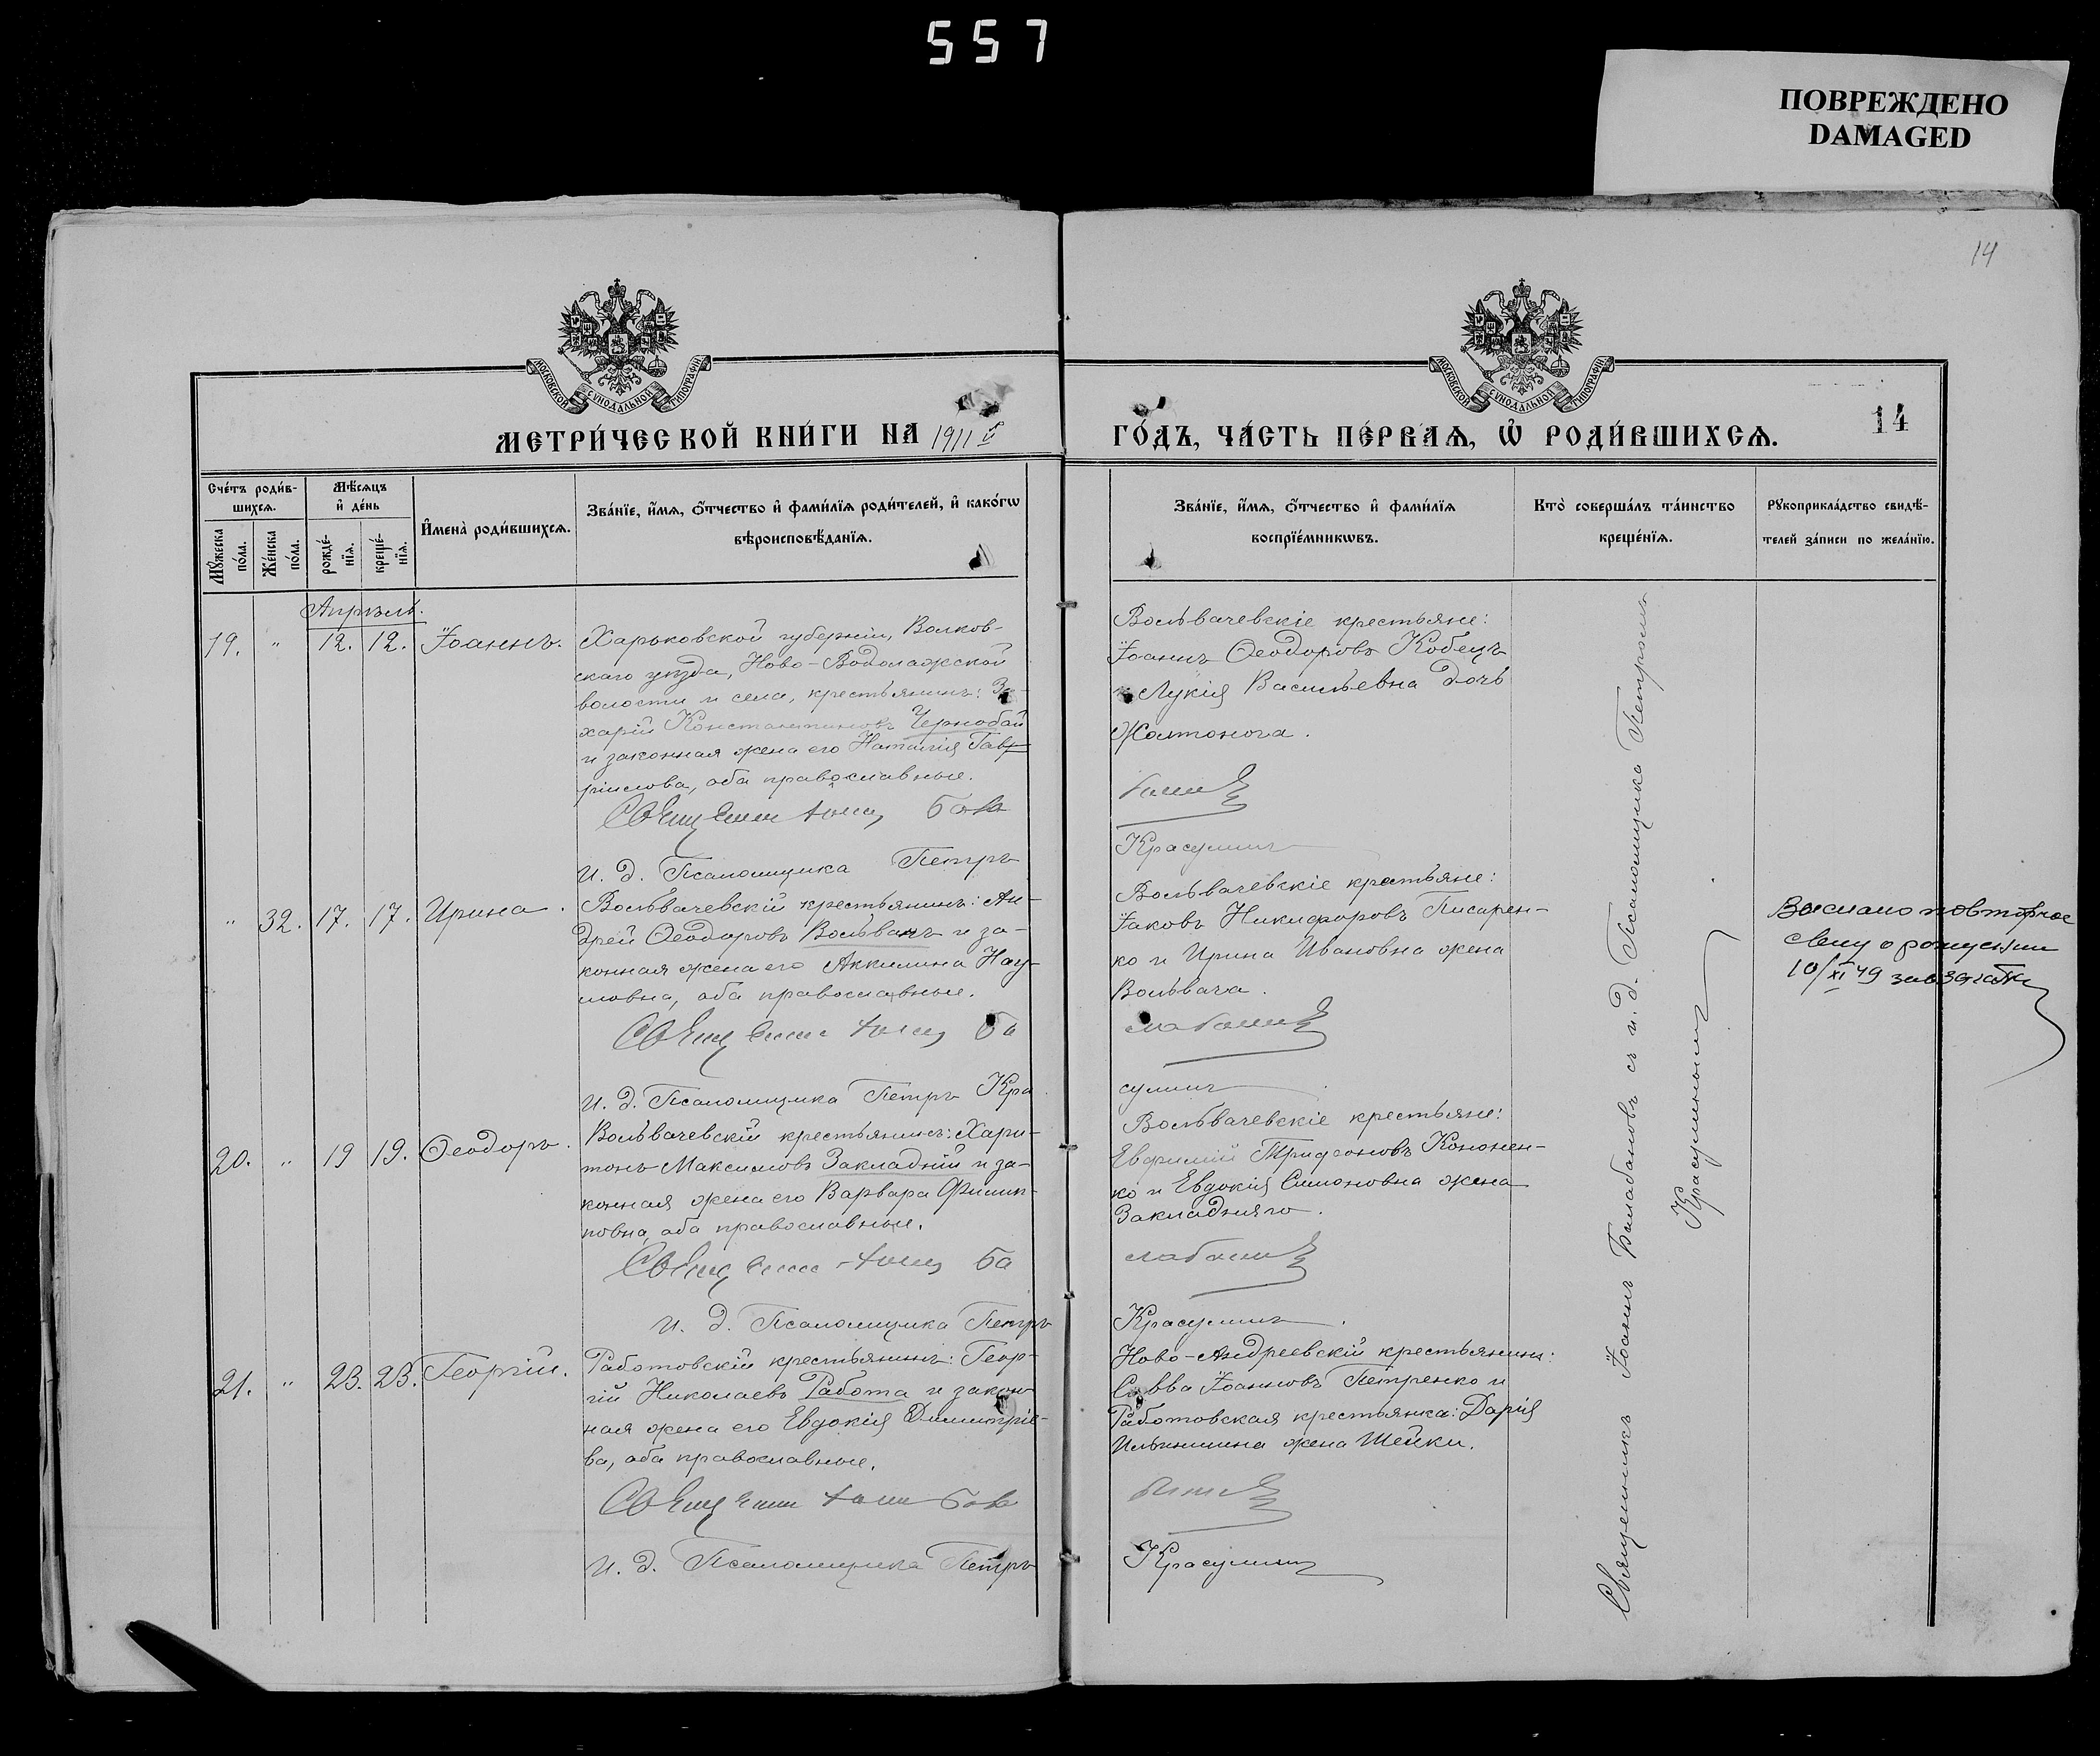 557
ПОВРЕЖДЕНО
DAMAGED
14
МОСКОВСКОЙ СѴНОДАЛЬНОЙ ТИПОГРАФІИ
МОСКОВСКОЙ СѴНОДАЛЬНОЙ ТИПОГРАФІИ
МЕТРИ́ЧЕСКОЙ КНИ́ГИ НА 1911 й
ГО́ДЪ, ЧА́СТЬ ПЕ́РВАѦ, Ѡ҆ РОДИ́ВШИХСѦ.
14
Сче́тъ роди́в-
шихсѧ.
Мꙋ́жеска
по́ла.
Же́нска
по́ла.
Мѣ́сѧцъ
и҆ де́нь
рожде́-
нїѧ.
креще́-
нїѧ.
И҆мена̀ роди́вшихсѧ.
Зва́нїе, и҆́мѧ, ѻ҆́тчество и҆ фами́лїѧ роди́телей, и҆ како́гѡ
вѣроисповѣ́данїѧ.
Зва́нїе, и҆́мѧ, ѻ҆́тчество и҆ фами́лїѧ
воспрїе́мникѡвъ.
Кто̀ соверша́лъ та́инство
креще́нїѧ.
Рꙋкоприкла́дство свидѣ́-
телей за́писи по жела́нїю.
Апрѣль.
19. " 12. 12. Іоаннъ.
Харьковской губерніи, Валков-
скаго уѣзда, Ново-Водолажской
волости и села, крестьянинъ: За-
харій Константиновъ Чернобай
и законная жена его Наталія Гав-
ріилова, оба православные.
Священникъ Іоаннъ Бала
И. д. Псаломщика Петръ
Вольвачевскіе крестьяне:
Іоаннъ Ѳеодоровъ Кобецъ
и Лукія Васильевна дочь
Жолтонога.
бановъ
Красулинъ
" 32. 17. 17. Ирина.
Вольвачевскій крестьянинъ: Ан-
дрей Ѳеодоровъ Вольвачъ и за-
конная жена его Акилина Нау-
мовна, оба православные.
Священникъ Іоаннъ Ба
И. д. Псаломщика Петръ Кра
Вольвачевскіе крестьяне:
Іаковъ Никифоровъ Писарен-
ко и Ирина Ивановна жена
Вольвача.
лабановъ
сулинъ
Выслано повторное
10/XI 49
20. " 19 19. Ѳеодоръ.
Вольвачевскій крестьянинъ: Хари-
тонъ Максимовъ Закладній и за-
конная жена его Варвара Филип-
повна, оба православные.
Священникъ Іоаннъ Ба
И. д. Псаломщика Петръ
Вольвачевскіе крестьяне:
Евфимій Трифоновъ Кононен-
ко и Евдокія Симоновна жена
Закладняго.
лабановъ
Красулинъ
21. " 23. 23. Георгій.
Работовскій крестьянинъ: Геор-
гій Николаевъ Работа и закон-
ная жена его Евдокія Димитріе-
ва, оба православные.
Священникъ Іоаннъ Бала
И. д. Псаломщика Петръ
Ново-Андреевскій крестьянинъ:
Савва Іоанновъ Петренко и
Работовская крестьянка: Дарія
Ильинишна жена Шейки.
бановъ
Красулинъ
Священникъ Іоаннъ Балабановъ съ и. д. Псаломщика Петромъ
Красулинымъ